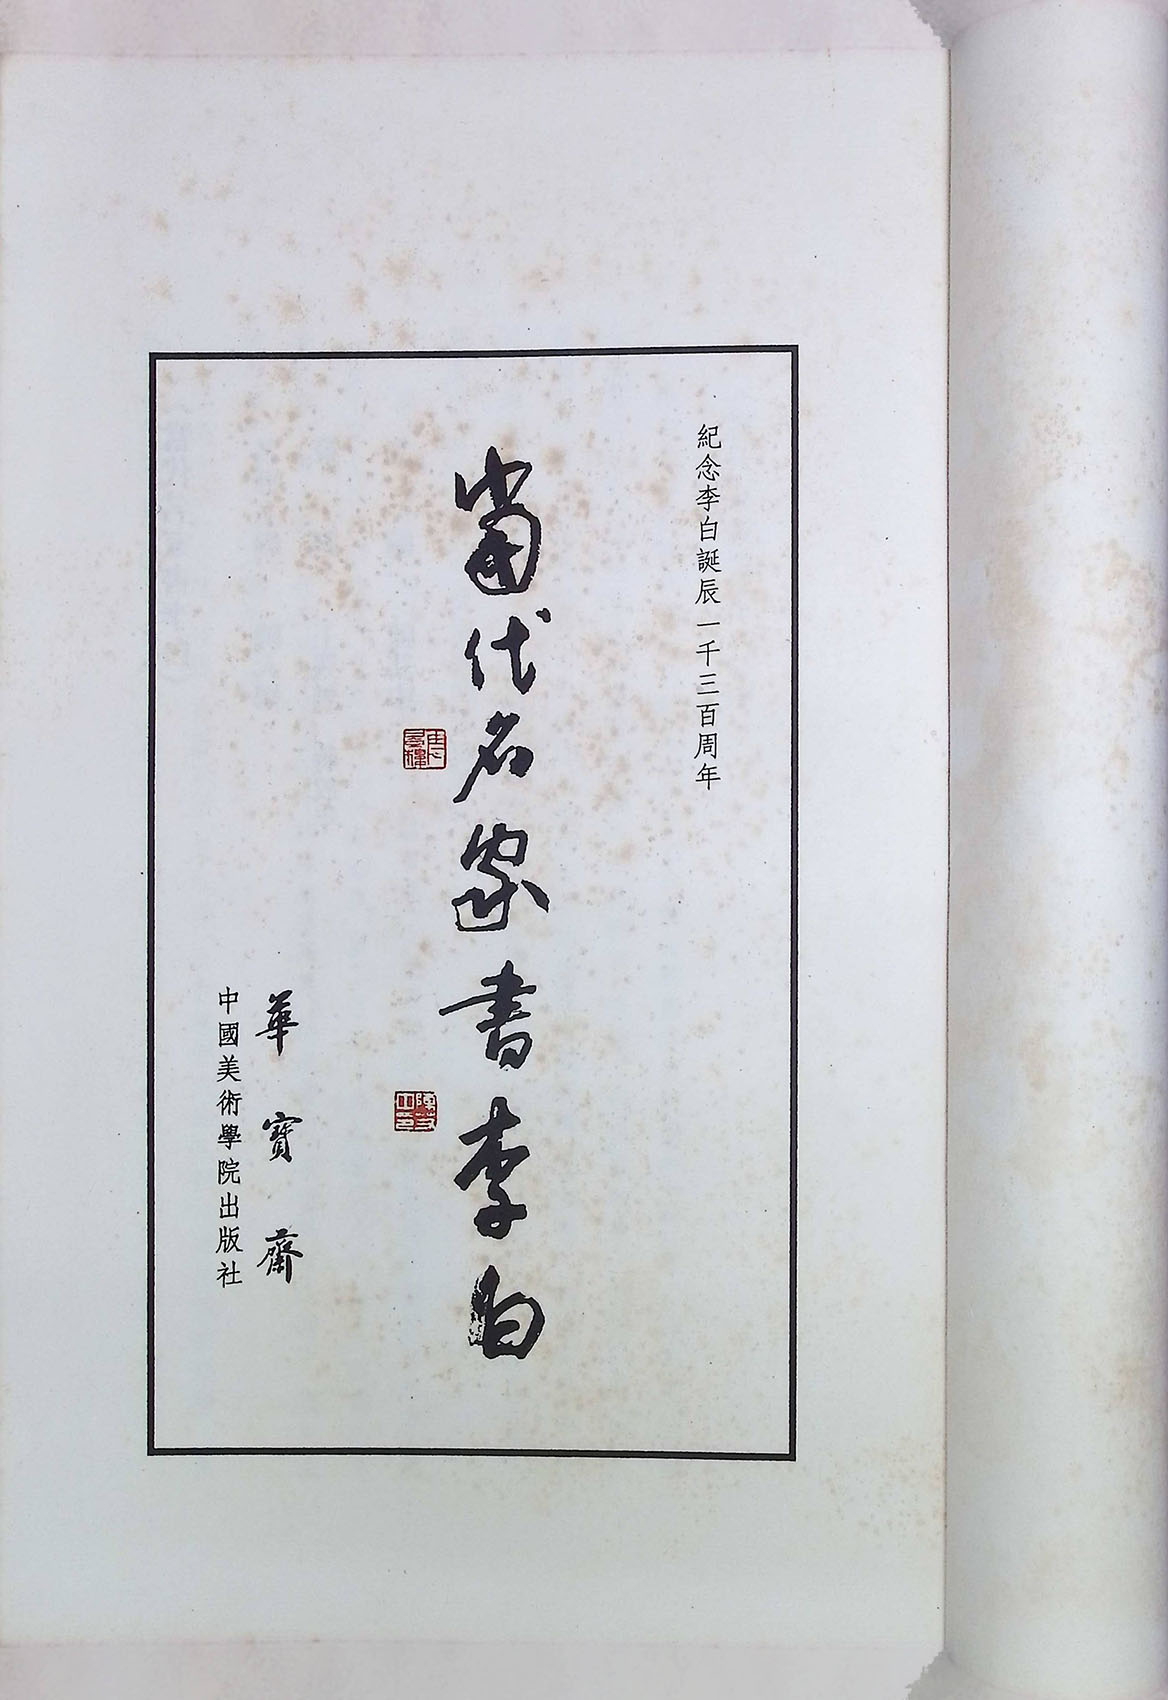 紀念李白誕辰一千三百周年
當代名家書李白
華寳齋
中國美術學院出版社